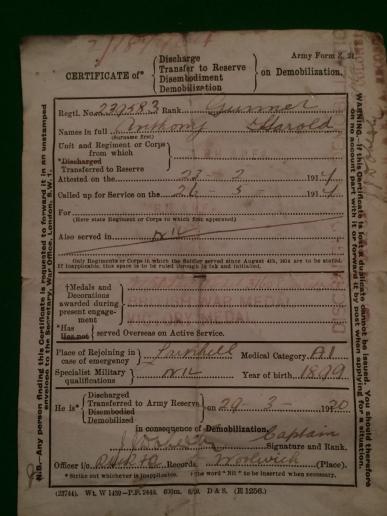 Army Form Z. 21
CERTIFICATE of* { Discharge Transfer to Reserve Disembodiment Demobilization } on Demobilization.
Regtl. No. 237583 Rank Gunner
Names in full Anthony Harold
(Surname first)
Unit and Regiment or Corps
from which
*Discharged
Transferred to Reserve
Attested on the 23 - 2 191
Called up for Service on the 26 191
For
(Here state Regiment or Corps to which first appointed)
Also served in Nil
Only Regiments or Corps in which the Soldier served since August 4th, 1914 are to be stated.
If inapplicable, this space is to be ruled through in ink and initialled.
†Medals and
Decorations
awarded during
present engage-
ment
WAR MEDAL
VICTORY MEDAL
*Has
Has not } served Overseas on Active Service.
Place of Rejoining in
case of emergency } Medical Category A1
Specialist Military
qualifications } Nil Year of birth 1899
He is* { Discharged Transferred to Army Reserve Disembodied Demobilized } on 29 - 3 - 1920
in consequence of Demobilization.
Captain
Signature and Rank.
Officer i/c Records. Woolwich (Place).
* Strike out whichever is inapplicable. † The word "Nil" to be inserted when necessary.
(23744). Wt. W 1430—P.P. 2448. D & S. (E 1256.)
N.B.—Any person finding this Certificate is requested to forward it in an unstamped
envelope to the Secretary, War Office, London, S.W. 1.
WARNING.—If this Certificate is lost a duplicate cannot be issued. You should therefore
on no account part with it or forward it by post when applying for a situation.